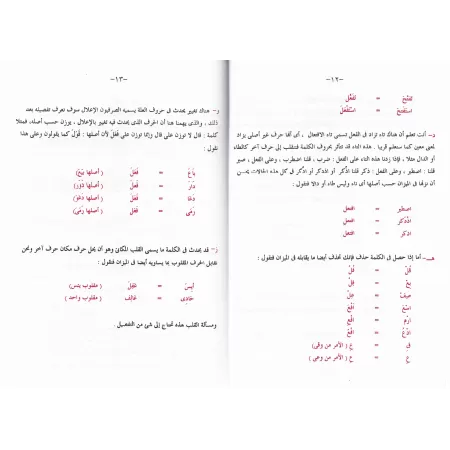 -١٢-
تفتّح = تفعّل
استفتح = استفعل
د- أنت تعلم أن هناك تاء تزاد في الفعل تسمى تاء الافتعال ، أي أنها حرف غير أصلي يزاد
لمعنى معين كما ستعلم قريبا . هذه التاء قد تتأثر بحروف الكلمة فتنقلب إلى حرف آخر كالطاء
أو الدال مثلا ، فإذا زدنا هذه التاء على الفعل : ضرب ، قلنا : اضطرب ، وعلى الفعل ، صبر
قلنا : اصطبر ، وعلى الفعل : ذكر قلنا اذكر أو ادّكر في كل هذه الحالات يحسن
أن نزنها في الميزان حسب أصلها أي تاء وليس طاء أو دالا فنقول :
اصطبر = افتعل
اذدكر = افتعل
ادكر = افتعل
هـ- أما إذا حصل في الكلمة حذف فإنك تحذف أيضا ما يقابله في الميزان فتقول :
قُلْ = فُلْ
بِعْ = فِلْ
اسْعَ = افْعَ
ارْمِ = افْعِ
ادْعُ = افْعُ
فِ = عِ ( الأمر من وفى )
عِ = عِ ( الأمر من وعى )
-١٣-
و- هناك تغيير يحدث في حروف العلة يسميه الصرفيون الإعلال سوف تعرف تفصيله بعد
ذلك ، والذي يهمنا هنا أن الحرف الذي يحدث فيه تغيير بالإعلال ، يوزن حسب أصله، فمثلا
كلمة : قال لا توزن على فال وإنما توزن على فَعَلَ لأن أصلها : قَوَلَ كما يقولون وعلى هذا
نقول :
باعَ = فَعَلَ ( أصلها بَيَعَ )
دَارَ = فَعَلَ ( أصلها دَوَرَ )
دَعَا = فَعَلَ ( أصلها دَعَوَ )
رَمَى = فَعَلَ ( أصلها رَمَيَ )
ز- قد يحدث في الكلمة ما يسمى القلب المكاني وهو أن يحل حرف مكان حرف آخر ونحن
نقابل الحرف المقلوب بما يساويه أيضا في الميزان فنقول :
أيِسَ = عَفِلَ ( مقلوب يئس )
حَادِي = عَالِف ( مقلوب واحد )
ومسألة القلب هذه تحتاج إلى شئ من التفصيل .